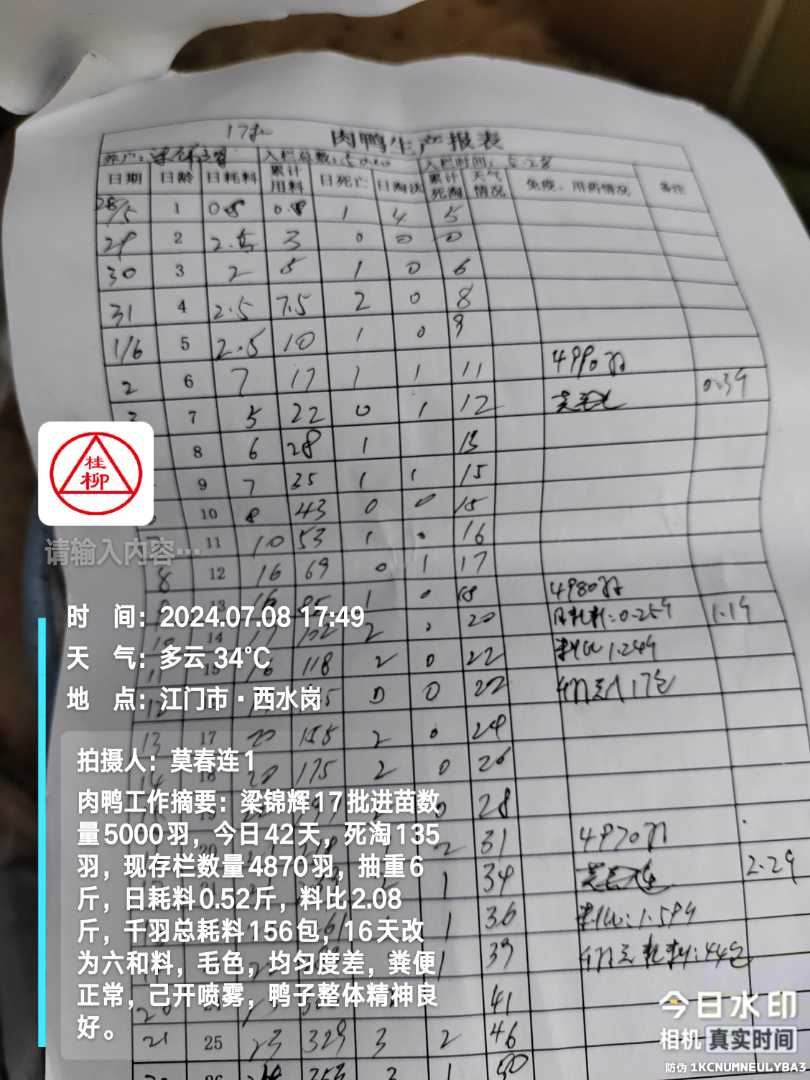 17批
肉鸭生产报表
养户: 入栏总数:5000 入栏时间:5.28
日期 日龄 日耗料 累计用料 日死亡 日淘汰 累计死淘 天气情况 免疫、用药情况 备注
28/5 1 0.8 0.8 1 4 5
29 2 2.5 3 0 0 0
30 3 2 5 1 0 6
31 4 2.5 7.5 2 0 8
1/6 5 2.5 10 1 0 9
2 6 7 17 1 1 11 4990羽
7 5 22 0 1 12
8 6 28 1 13
9 7 35 1 1 15
10 8 43 0 0 15
11 10 53 1 0 16
8 12 16 69 0 1 17
13 1 0 18 4980羽
14 17 102 2 20 日耗料:0.25斤 1.1斤
118 2 0 22 料比1.24斤
0 0 22 17包
13 17 20 155 2 0 24
14 20 175 2 0 26
28
2 31 4970羽
1 34 2.2斤
1 36 料比:1.59斤
1 39 耗料:44包
41
21 25 23 329 3 2 46
353 3 1 50
桂柳
请输入内容…
时 间:2024.07.08 17:49
天 气:多云 34℃
地 点:江门市·西水岗
拍摄人:莫春连1
肉鸭工作摘要:梁锦辉17批进苗数
量5000羽,今日42天,死淘135
羽,现存栏数量4870羽,抽重6
斤,日耗料0.52斤,料比2.08
斤,千羽总耗料156包,16天改
为六和料,毛色,均匀度差,粪便
正常,己开喷雾,鸭子整体精神良
好。
今日水印
相机 真实时间
防伪 1KCNUMNEULYBA3